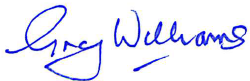 Greg Williams